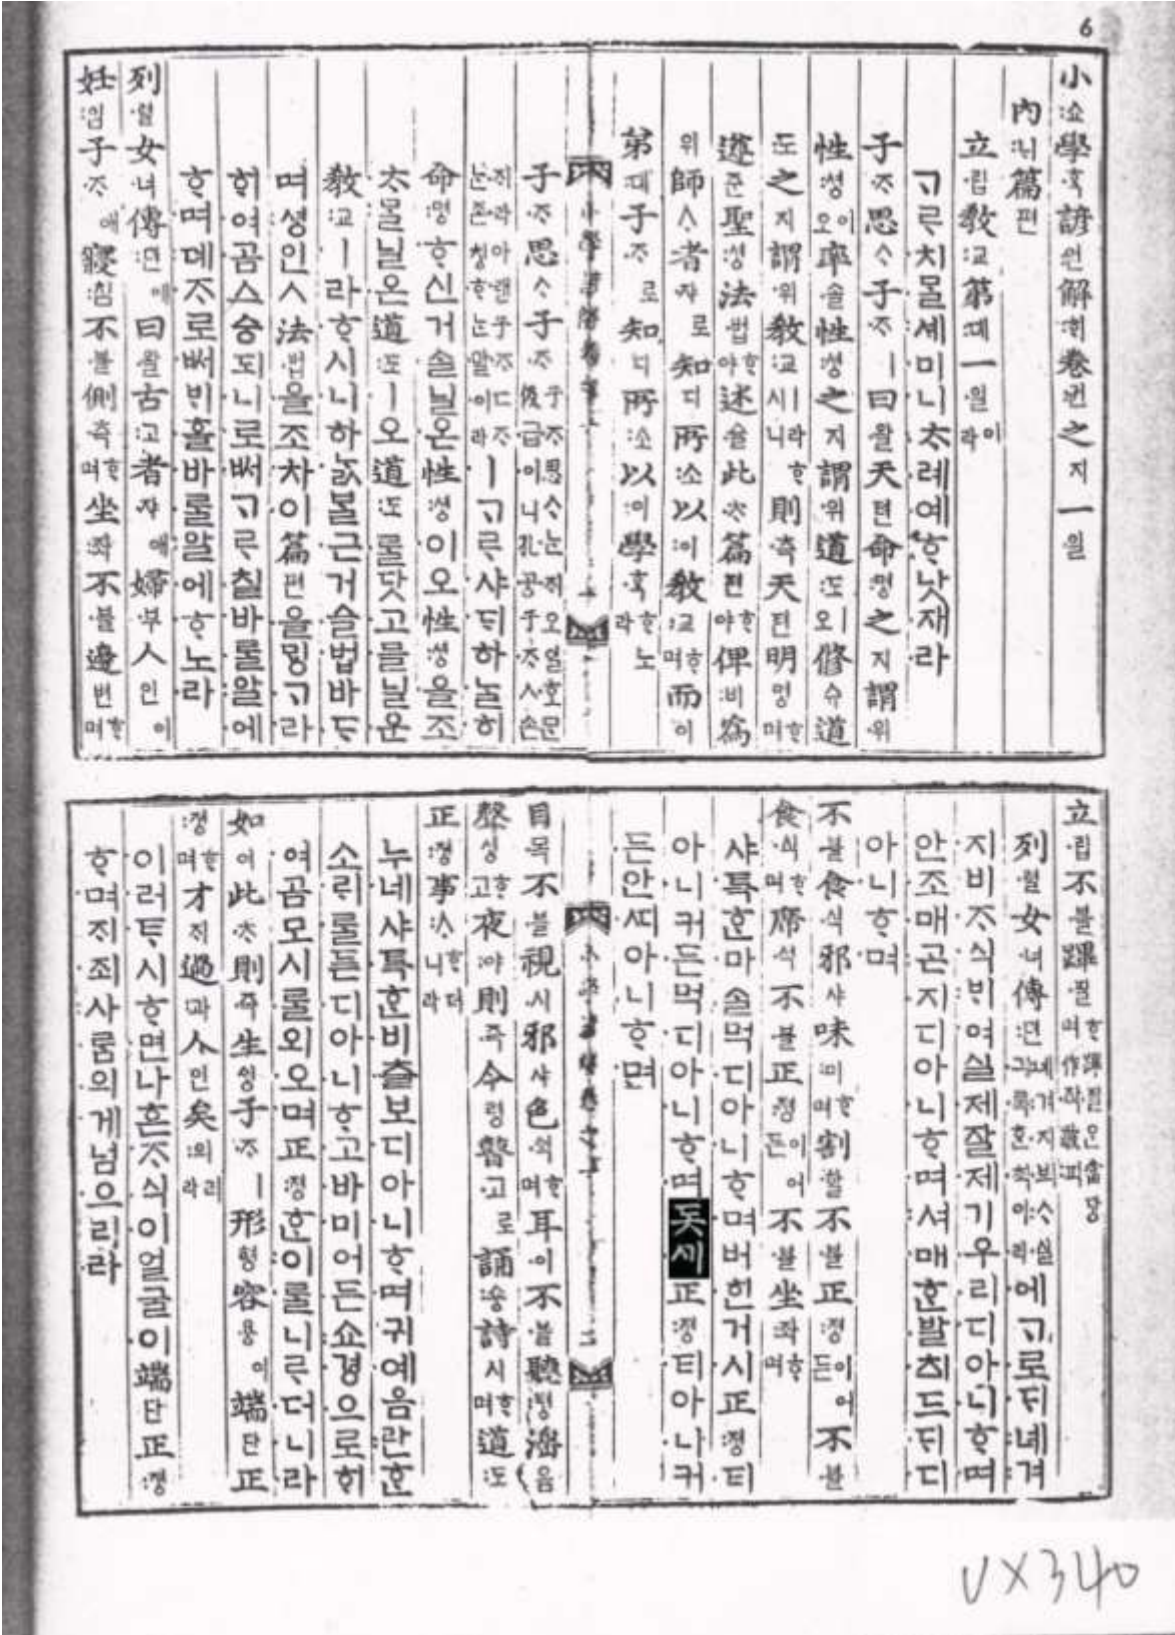 6
小:쇼學·ᄒᆞᆨ諺:언解:ᄒᆡ卷:권之지一·일
內:ᄂᆡ篇편
立·립敎:교第:뎨一·일이라
ᄀᆞᄅᆞ치믈셰미니ᄎᆞ례예ᄒᆞ낫재라
子·ᄌᆞ思ᄉᆞ子·ᄌᆞㅣ曰·왈天텬命·명之지謂·위
性:셩이오率·솔性:셩之지謂·위道:도ㅣ오修슈道
:도之지謂·위敎:교ㅣ시니라ᄒᆞ則·즉天텬明명ᄒᆞ며
遵준聖:셩法·법ᄒᆞ야述·슐此·ᄎᆞ篇편ᄒᆞ야俾:비爲
위師ᄉᆞ者쟈로知디所:소以:이敎:교ᄒᆞ며而이
第:뎨子·ᄌᆞ로知디所:소以:이學·ᄒᆞᆨᄒᆞ노라
子·ᄌᆞ思ᄉᆞ子·ᄌᆞ
ㅣᄀᆞᄅᆞ샤ᄃᆡ하ᄂᆞᆯ히
命:명ᄒᆞ신거ᄉᆞᆯ닐온性:셩이오性:셩을조
ᄎᆞᄆᆞᆯ닐온道:도ㅣ오道:도ᄅᆞᆯ닷고ᄆᆞᆯ닐운
敎:교ㅣ라ᄒᆞ시니하ᄂᆞᆳᄇᆞᆯ근거슬법바ᄃᆞ
며셩인ㅅ法·법을조차이篇편을ᄆᆡᆼᄀᆞ라
ᄒᆡ여곰스승되니로ᄡᅥᄀᆞᄅᆞ칠바ᄅᆞᆯ알에
ᄒᆞ며뎨ᄌᆞ로ᄡᅥᄇᆡ홀바ᄅᆞᆯ알에ᄒᆞ노라
列·렬女녀傳:뎐애曰·왈古:고者쟈애婦·부人인이
妊:임子·ᄌᆞ애寢:침不·블側·측ᄒᆞ며坐:좌不·블邊변ᄒᆞ며
立·립不·블蹕·필ᄒᆞ며
列·렬女녀傳:뎐에ᄀᆞ로ᄃᆡ녜겨
지비ᄌᆞ식ᄇᆡ여실제잘제기우리디아니ᄒᆞ며
안조매ᄀᆞᆫᄌᆡ디아니ᄒᆞ며셔매ᄒᆞᆫ발츼드듸디
아니ᄒᆞ며
不·블食·식邪샤味·미ᄒᆞ며割·할不·블正·졍이어든不·블
食·식ᄒᆞ며席·셕不·블正·졍이어든不·블坐:좌ᄒᆞ며
샤특ᄒᆞᆫ마ᄉᆞᆯ먹디아니ᄒᆞ며버힌거시正:졍티
아니커든먹디아니ᄒᆞ며돗씨正:졍티아니커
든안ᄯᅵ아니ᄒᆞ면
目목不·블視:시邪샤色·ᄉᆡᆨᄒᆞ며耳:이不·블聽·텽淫음
聲셩ᄒᆞ고夜·야則·즉令령瞽:고로誦:숑詩시ᄒᆞ며道:도
正:졍事:ᄉᆞᄒᆞ더니라
누네샤특ᄒᆞᆫ비츨보디아니ᄒᆞ며귀예음란ᄒᆞᆫ
소ᄅᆡᄅᆞᆯ듣디아니ᄒᆞ고바미어든쇼경으로ᄒᆡ
여곰모시ᄅᆞᆯ외오며正:졍ᄒᆞᆫ이ᄅᆞᆯ니ᄅᆞ더니라
如여此·ᄎᆞ則·즉生ᄉᆡᆼ子·ᄌᆞㅣ形형容용이端단正
:졍ᄒᆞ며才ᄌᆡ過·과人인矣:의리라
이러ᄐᆞ시ᄒᆞ면나ᄒᆞᆫᄌᆞ식이얼굴이端단正:졍
ᄒᆞ며ᄌᆡ죄사ᄅᆞᆷ의게넘으리라
VX340